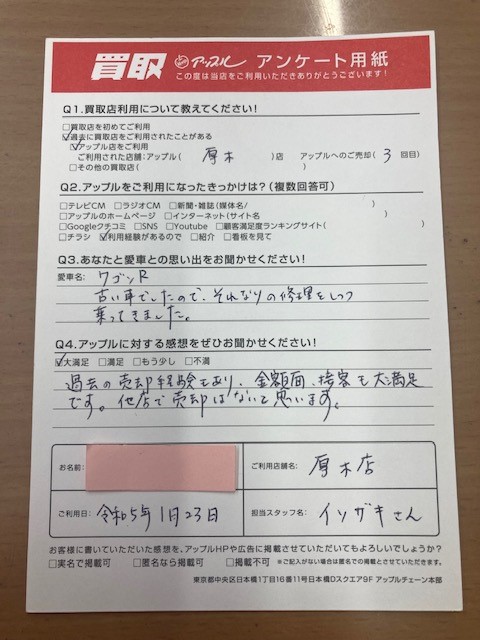 買取 アップル アンケート用紙
この度は当店をご利用いただきありがとうございます!
Q1.買取店利用について教えてください!
□買取店を初めてご利用
☑過去に買取店をご利用されたことがある
☑アップル店をご利用
ご利用された店舗:アップル( 厚木 )店 アップルへのご売却( 3 回目)
□その他の買取店( )
Q2.アップルをご利用になったきっかけは?(複数回答可)
□テレビCM □ラジオCM □新聞・雑誌(媒体名/ )
□アップルのホームページ □インターネット(サイト名 )
□Googleクチコミ □SNS □Youtube □顧客満足度ランキングサイト( )
□チラシ ☑利用経験があるので □紹介 □看板を見て
Q3.あなたと愛車との思い出をお聞かせください!
愛車名: ワゴンR
古い車でしたので、それなりの修理をしつつ
乗ってきました。
Q4.アップルに対する感想をぜひお聞かせください!
☑大満足 □満足 □もう少し □不満
過去の売却経験もあり、金額面、接客も大満足
です。他店で売却はないと思います。
お名前:
ご利用店舗名: 厚木店
ご利用日: 令和5年1月23日
担当スタッフ名: イソガキさん
お客様に書いていただいた感想を、アップルHPや広告に掲載させていただいてもよろしいでしょうか?
□実名で掲載可 □匿名なら掲載可 □掲載不可 ※ご記入がない場合は匿名での掲載とさせていただきます。
東京都中央区日本橋1丁目16番11号日本橋Dスクエア9F アップルチェーン本部